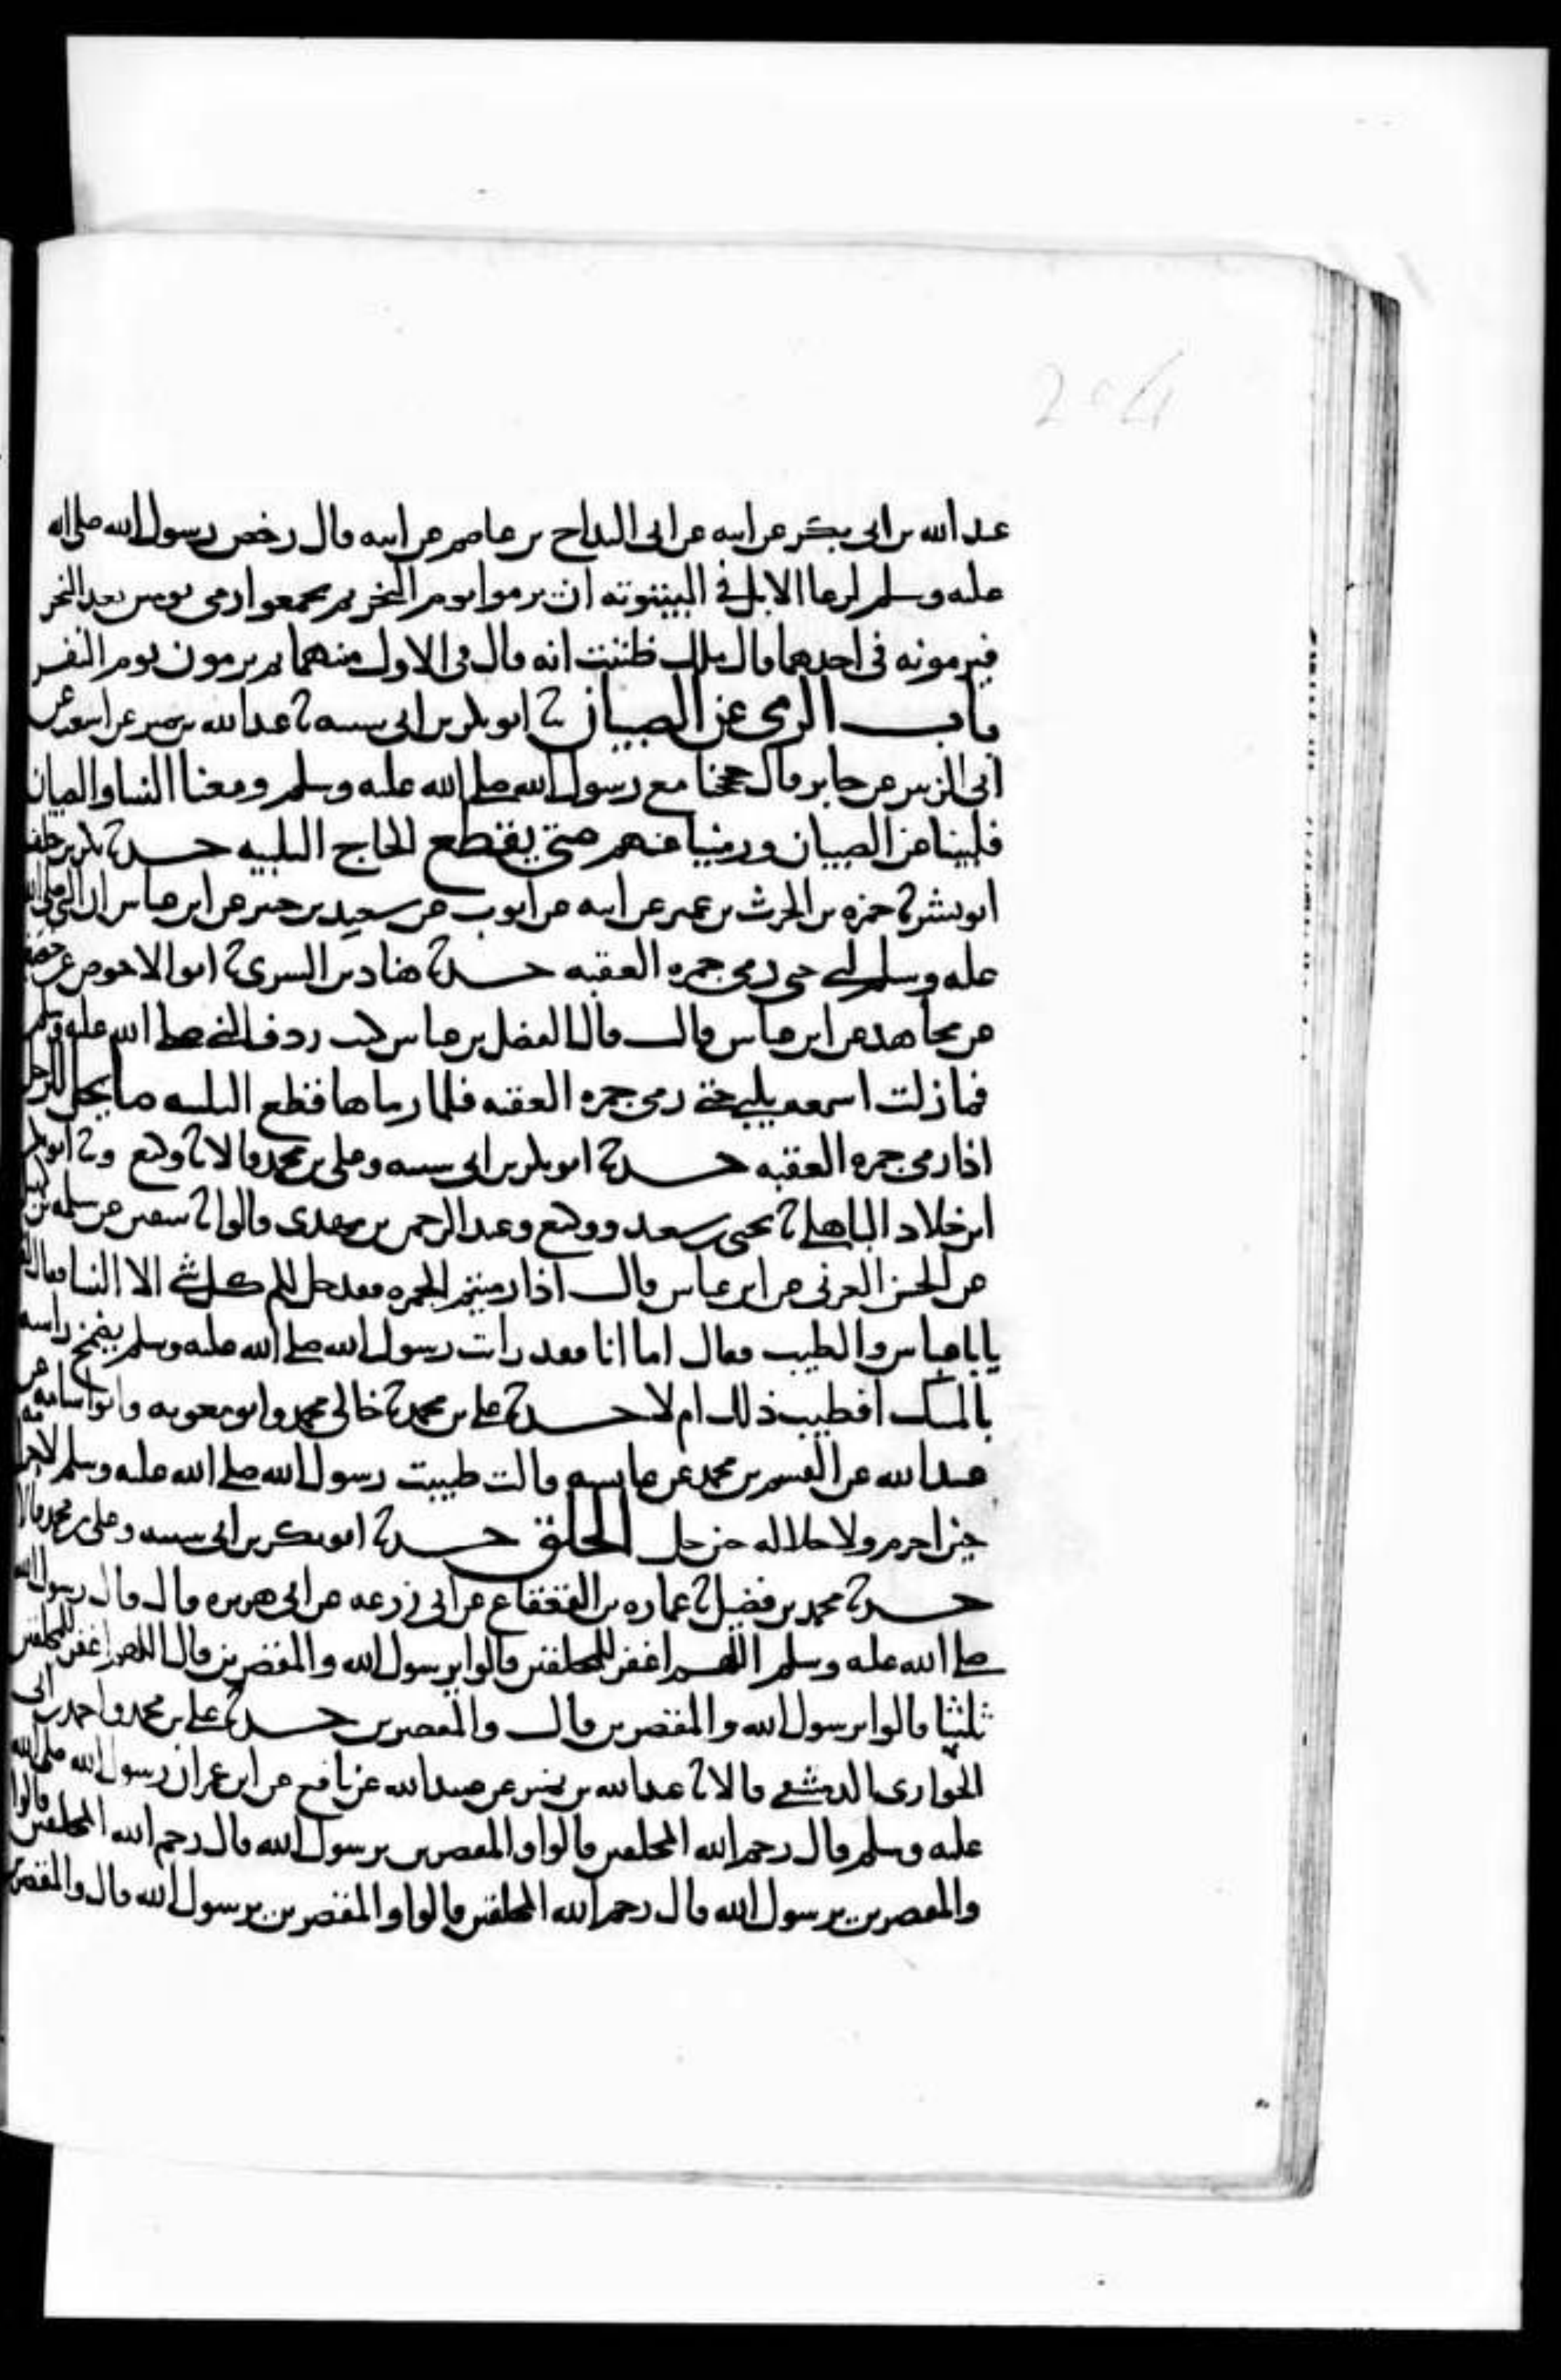 204
عبد الله بن ابي بكر عن ابيه عن ابي البداح بن عاصم عن ابيه قال رخص رسول الله صلى الله
عليه وسلم لرعا الابل في البيتوته ان يرموا يوم النحر ثم يجمعوا رمي يومين بعد النحر
فيرمونه في احدهما قال ملك ظننت انه قال في الاول منهما ثم يرمون يوم النفر
باب الرمي عن الصبيان ثنا ابو بكر بن ابي شيبه ثنا عبد الله بن نمير عن اشعث عن
ابي الزبير عن جابر قال حججنا مع رسول الله صلى الله عليه وسلم ومعنا النسا والصبيان
فلبينا عن الصبيان ورمينا عنهم متى يقطع الحاج التلبيه حدثنا بكر بن خلف
ابو بشر ثنا حمزه بن الحرث بن عمير عن ابيه عن ايوب عن سعيد بن جبير عن ابن عباس ان النبي صلى الله
عليه وسلم لبى حتى رمى جمره العقبه حدثنا هناد بن السري ثنا ابو الاحوص عن خصيف
عن مجاهد عن ابن عباس قال قال الفضل بن عباس كنت ردف النبي صلى الله عليه وسلم
فما زلت اسمعه يلبي حتى رمى جمره العقبه فلما رماها قطع التلبيه ما يحل للرجل
اذا رمى جمره العقبه حدثنا ابو بكر بن ابي شيبه وعلي بن محمد قالا ثنا وكيع وثنا ابو بكر
ابن خلاد الباهلي ثنا يحيى بن سعيد ووكيع وعبد الرحمن بن مهدي قالوا ثنا سفين عن سلمه بن كهيل
عن الحسن العرني عن ابن عباس قال اذا رميتم الجمره فقد حل لكم كل شي الا النسا فقال له
يابا عباس والطيب فقال اما انا فقد رايت رسول الله صلى الله عليه وسلم يضمخ راسه
بالمسك افطيب ذلك ام لا حدثنا علي بن محمد ثنا خالي محمد وابو معويه وابو اسامه عن
عبيد الله عن القسم بن محمد عن عايشه قالت طيبت رسول الله صلى الله عليه وسلم لاحرامه
حين احرم ولاحلاله حين حل الحلق حدثنا ابو بكر بن ابي شيبه وعلي بن محمد قالا
حدثنا محمد بن فضيل ثنا عماره بن القعقاع عن ابي زرعه عن ابي هريره قال قال رسول الله
صلى الله عليه وسلم اللهم اغفر للمحلقين قالوا يرسول الله والمقصرين قال اللهم اغفر للمحلقين
ثلثا قالوا يرسول الله والمقصرين قال والمقصرين حدثنا علي بن محمد واحمد بن ابي
الحواري الدمشقي قالا ثنا عبد الله بن نمير عن عبيد الله عن نافع عن ابن عمر ان رسول الله صلى الله
عليه وسلم قال رحم الله المحلقين قالوا والمقصرين يرسول الله قال رحم الله المحلقين قالوا
والمقصرين يرسول الله قال رحم الله المحلقين قالوا والمقصرين يرسول الله قال والمقصرين